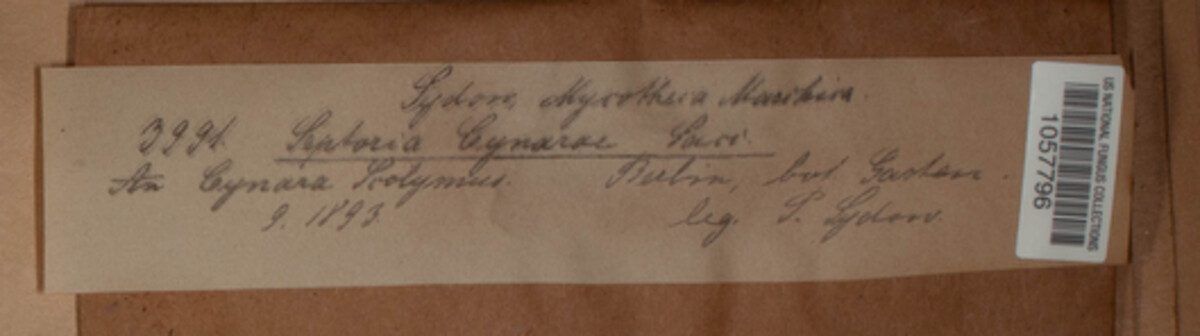 Sydow, Mycotheca Marchica.
3991. Septoria Cynarae Sacc.
An Cynara Scolymus. Berlin, bot Garten.
9. 1893. leg. P. Sydow.
US NATIONAL FUNGUS COLLECTIONS
1057796